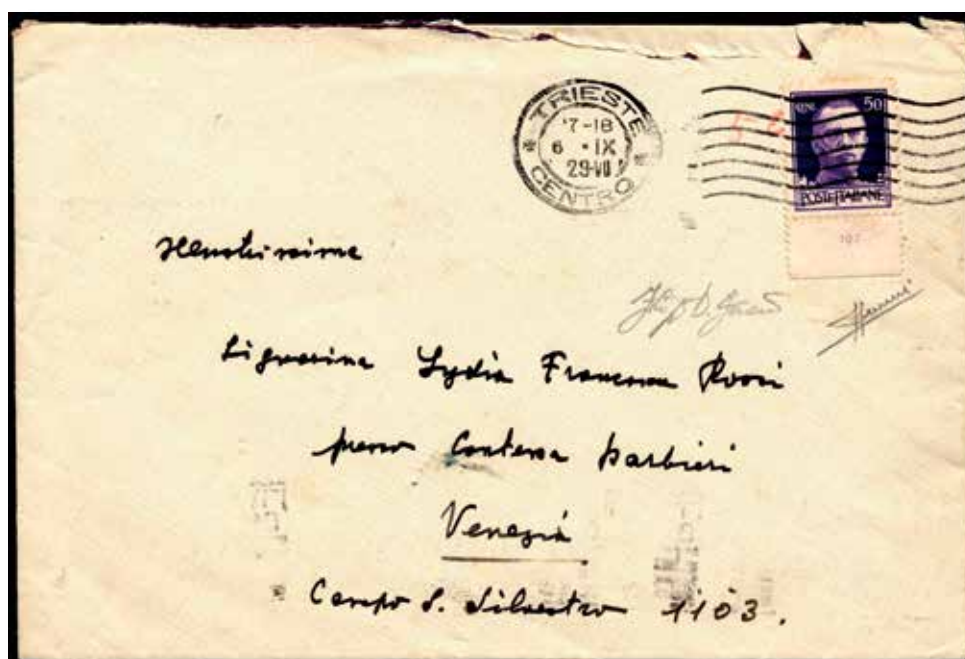 * TRIESTE *
17-18
6 • IX
29-VII
CENTRO
CENT. 50
POSTE ITALIANE
107
Signorina Lydia Francesca Rossi
presso Contessa Barbieri
Venezia
Campo S. Silvestro 1103.